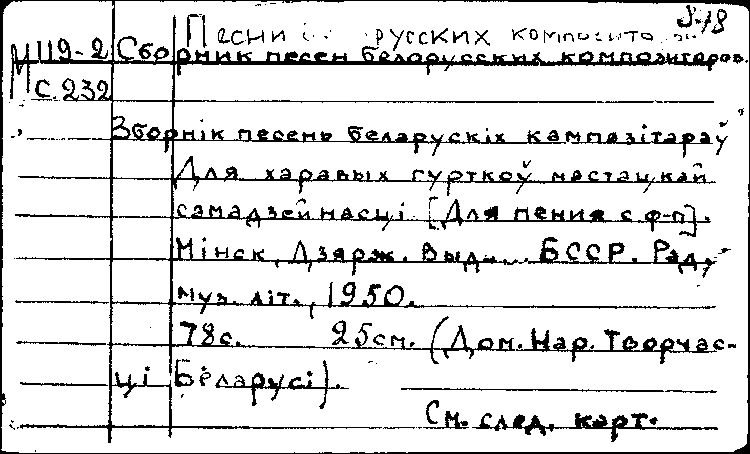 Песни русских
М 119-2 Сборник песен белорусских композиторов.
С 232
Зборнік песень беларускіх кампазітараў
Для харавых гурткоў мастацкай
самадзейнасці [Для пения с ф-п].
Мінск, Дзярж. Выд. БССР. Рэд.
муз. літ., 1950.
78с. 25см. (Дом. Нар. Творчас-
ці Беларусі).
См. след. карт.